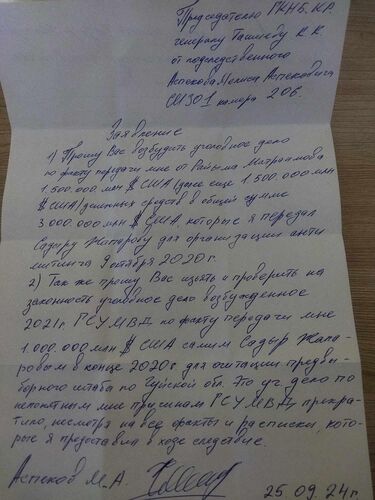 Председателю ГКНБ. КР.
генералу Ташиеву К. К
от подследственного
Аспекова Мелиса Аспековича
СИЗО 1 камера 206.
Заявление
1) Прошу Вас возбудить уголовное дело
по факту передачи мне от Райыма Матраимова
1.500.000 млн $ США (далее еще 1.500.000 млн
$ США) денежных средств в общей сумме
3.000.000 млн $ США, которые я передал
Садыру Жапарову для организации анти
митинга 9 октября 2020 г.
2) Так же прошу Вас изъять и проверить на
законность уголовное дело возбужденное
2021г ГСУ МВД по факту передачи мне
1.000.000 млн $ США самим Садыр Жапа-
ровым в конце 2020г. для агитации предвы-
борного штаба по Чуйской обл. Это уг. дело по
непонятным мне причинам ГСУ МВД прекра-
тило, несмотря на все факты и расписки, кото-
рые я предоставил в ходе следствие.
Аспеков М.А.
25 09. 24г.